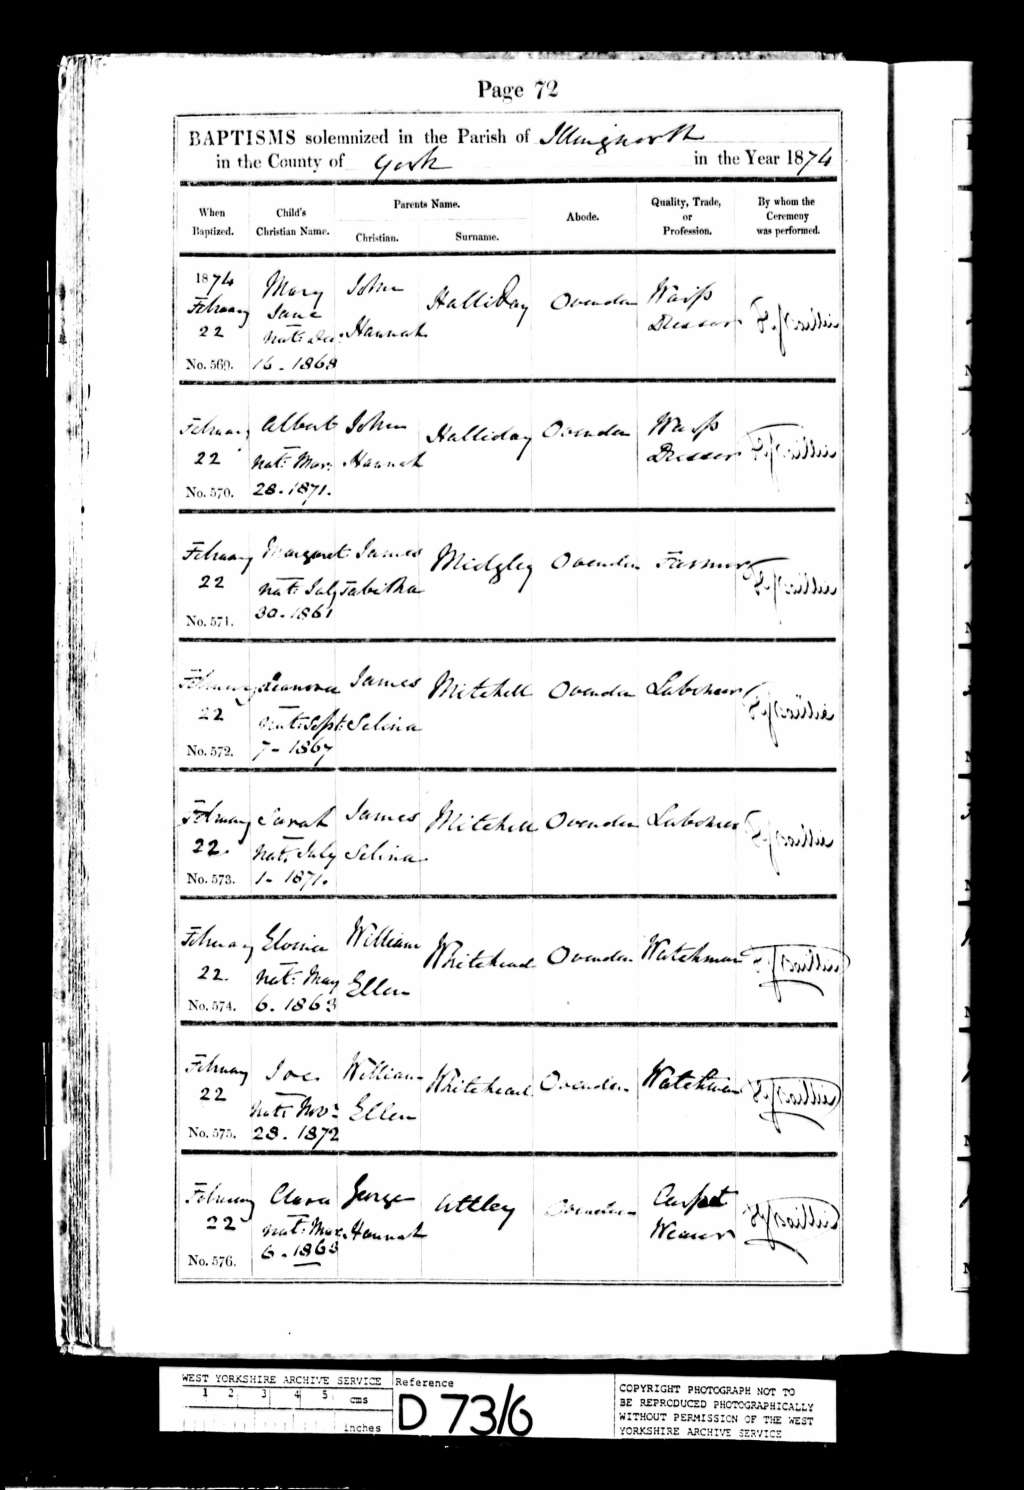 Page 72
BAPTISMS solemnized in the Parish of Illingworth
in the County of York in the Year 1874
When Baptized.
Child's Christian Name.
Parents Name.
Christian.
Surname.
Abode.
Quality, Trade, or Profession.
By whom the Ceremony was performed.
1874
February
22
No. 569.
Mary
Jane
nat: Dec.
16 - 1868
John
Hannah
Halliday
Ovenden
Warp
Dresser
February
22
No. 570.
Albert
nat: Mar:
28. 1871.
John
Hannah
Halliday
Ovenden
Warp
Dresser
February
22
No. 571.
Margaret
nat: July
30. 1861
James
Tabitha
Midgley
Ovenden
Farmer
February
22
No. 572.
nat: Sept:
7 - 1867
James
Selina
Mitchell
Ovenden
Labourer
February
22.
No. 573.
Sarah
nat. July
1 - 1871.
James
Selina
Mitchell
Ovenden
Labourer
February
22.
No. 574.
nat: May
6. 1863
William
Ellen
Whitehead
Ovenden
Watchman
February
22
No. 575.
Joe
nat: Nov:
28. 1872
William
Ellen
Whitehead
Ovenden
Watchman
February
22
No. 576.
Clara
nat: Mar.
6 - 1863
George
Hannah
Uttley
Ovenden
Carpet
Weaver
WEST YORKSHIRE ARCHIVE SERVICE
1 2 3 4 5 cms
inches
Reference
D 73/6
COPYRIGHT PHOTOGRAPH NOT TO
BE REPRODUCED PHOTOGRAPHICALLY
WITHOUT PERMISSION OF THE WEST
YORKSHIRE ARCHIVE SERVICE